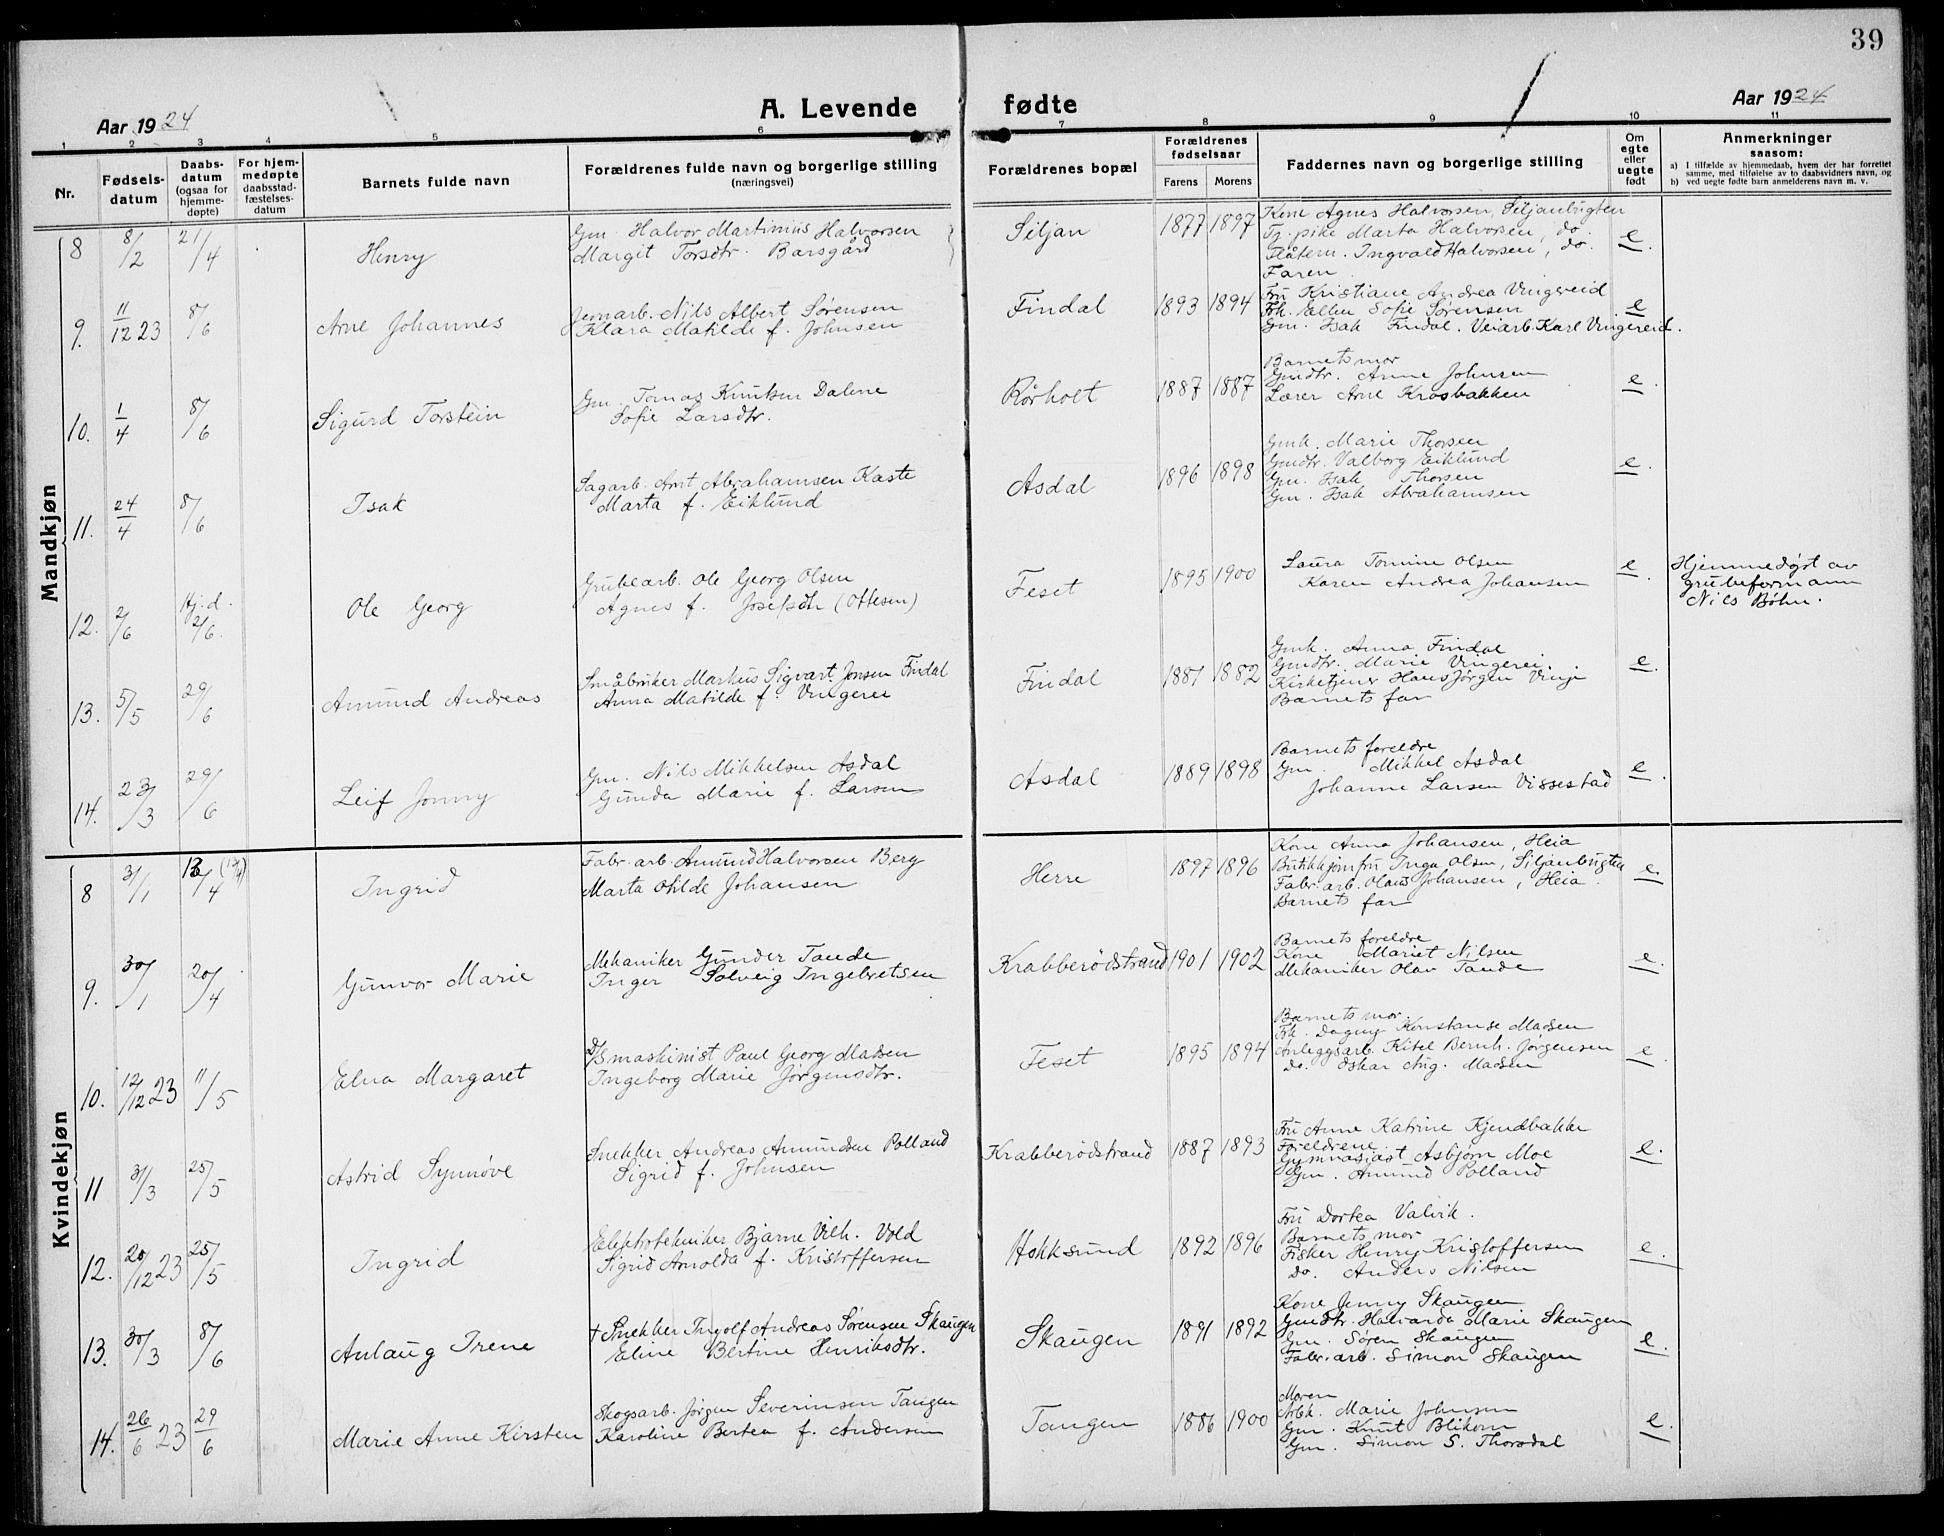 39
Aar 1924
A. Levende fødte
Aar 1924
1 2 3 4 5 6 7 8 9 10 11
Nr.
Fødsels-
datum
Daabs-
datum
(ogsaa for
hjemme-
døpte)
For hjem-
medøpte
daabsstad-
fæstelses-
datum
Barnets fulde navn
Forældrenes fulde navn og borgerlige stilling
(næringsvei)
Forældrenes bopæl
Forældrenes
fødselsaar
Farens Morens
Faddernes navn og borgerlige stilling
Om
egte
eller
uegte
født
Anmerkninger
saasom:
a) I tilfælde av hjemmedaab, hvem der har forrettet
samme, med tilføielse av to daabsvidners navn, og
b) ved uegte fødte barn anmelderens navn m. v.
Mandkjøn
8 8/2 21/4 Henry
Gm. Halvor Martinius Halvorsen
Margit Torsdtr. Barsgård
Siljan 1877 1897
Kone Agnes Halvorsen, Siljanbugten
Tj. pike Marta Halvorsen, do.
Flåtem. Ingvald Halvorsen, do.
Faren
e.
9. 11/12 23 8/6 Arne Johannes
Jernarb. Nils Albert Sørensen
Klara Matilde f. Johnsen
Findal 1893 1894
Fru Kristiane Andrea Vingereid
Frk. Ellen Sofie Sørensen
Gm. Isak Findal. Veiarb. Karl Vingereid.
e
10. 1/4 8/6 Sigurd Torstein
Gm. Tomas Knutsen Dalene
Sofie Larsdtr.
Rørholt 1887 1887
Barnets mor
Gmdtr. Anne Johnsen
Lærer Arne Krosbakken
e.
11. 24/4 8/6 Isak
Sagarb. Arnt Abrahamsen Kaste
Marta f. Eiklund
Asdal 1896 1898
Gmk. Marie Thorsen
Gmdtr. Valborg Eiklund
Gm. Isak Thorsen
Gm. Isak Abrahamsen
e.
12. 2/6 Hj. d. 2/6. Ole Georg
Grubearb. Ole Georg Olsen
Agnes f. Josefsdtr (Ottesen)
Feset 1895 1900
Laura Tomine Olsen
Karen Andrea Johansen
e.
Hjemmedøpt av
grubeformann
Nils Bøhn.
13. 5/5 29/6 Amund Andreas
Småbruker Markus Sigvart Jonsen Findal
Anna Matilde f Vingerei
Findal 1881 1882
Gmk. Anna Findal
Gmdtr. Marie Vingerei.
Kirketjener Hans Jørgen Vinje
Barnets far
e.
14. 23/3 29/6 Leif Jonny
Gm. Nils Mikkelsen Asdal
Gunda Marie f. Larsen
Asdal 1889 1898
Barnets foreldre
Gm. Mikkel Asdal
Johanne Larsen Vissestad
e.
Kvindekjøn
8 31/1 /4 Ingrid
Fabr. arb. Amund Halvorsen Berg
Marta Otilde Johansen
Herre 1897 1896
Kone Anna Johansen, Heia
Butikkjomfru Inga Olsen, Siljanbugten
Fabr. arb. Olaus Johansen, Heia.
Barnets far
e.
9. 30/1 20/4 Gunvor Marie
Mekaniker Gunder Tande
Inger Solveig Ingebretsen
Krabberødstrand 1901 1902
Barnets foreldre
Kone Mariet Nilsen
Mekaniker Olav Tande
e.
10. 12/12 23 11/5 Elna Margaret
D/S maskinist Paul Georg Madsen
Ingeborg Marie Jørgensdtr.
Feset 1895 1894
Barnets mor.
Frk. Dagny Konstanse Madsen
Anleggsarb. Kitel Bernh. Jørgensen
Do. Oskar Aug. Madsen
e.
11 31/3 25/5 Astrid Synnøve
Snekker Andreas Amundsen Polland
Sigrid f. Johnsen
Krabberødstrand 1887 1893
Fru Anne Katrine Kjendbakke
Foreldrene.
Gymnasiast Asbjørn Moe
Gm. Amund Polland
e.
12. 20/12 23 25/5 Ingrid
Elektrotekniker Bjarne Vilh. Vold
Sigrid Arnolda f. Kristoffersen
Hokksund 1892 1896
Fru Dortea Valvik.
Barnets mor
Fisker Henry Kristoffersen
Do. Anders Nilsen
e.
13. 30/3 8/6 Anlaug Irene
+ Snekker Ingolf Andreas Sørensen Skaugen
Eline Bertine Henriksdtr.
Skaugen 1891 1892
Kone Jenny Skaugen
Gmdtr. Halvarda Marie Skaugen
Gm. Søren Skaugen
Fabr. arb. Simon Skaugen
e.
14. 26/6 23 29/6 Marie Anne Kirsten
Skogsarb. Jørgen Severinsen Tangen
Karoline Bertea f. Andersen
Tangen 1886 1900
Moren
Arbk. Marie Johnsen
Gm. Knut Blikom
Gm. Simon S. Thorsdal
e.